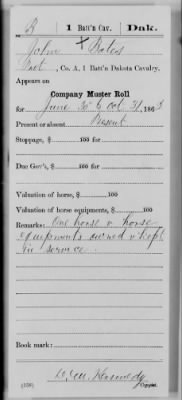 B | 1 Batt'n Cav. | Dak.
John Bates
Pvt., Co. A, 1 Batt'n Dakota Cavalry.
Appears on
Company Muster Roll
for June 30 to Oct 31, 1863
Present or absent Present
Stoppage, $ 100 for
Due Gov't, $ 100 for
Valuation of horse, $ 100
Valuation of horse equipments, $ 100
Remarks: One horse & horse
equipments owned & kept
in service.
Book mark:
(358) Copyist.